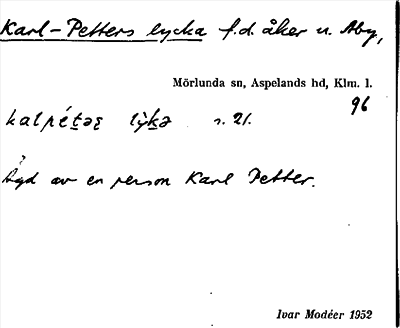 Karl-Petters lycka f.d. åker u. Åby,
Mörlunda sn, Aspelands hd, Klm. l.
96
s. 21.
Ägd av en person Karl Petter.
Ivar Modéer 1952